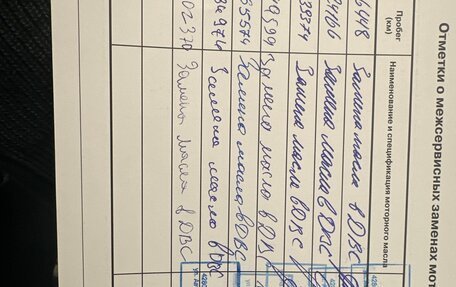 Отметки о межсервисных заменах мот
Пробег
(км)
Наименование и спецификация моторного масла
6448 Замена масла в ДВС
Замена масла в ДВС
33374 Замена масла в ДВС
Замена масло в ДВС
55574 Замена масла в ДВС
Замена масло в ДВС
02370 Замена масла в ДВС